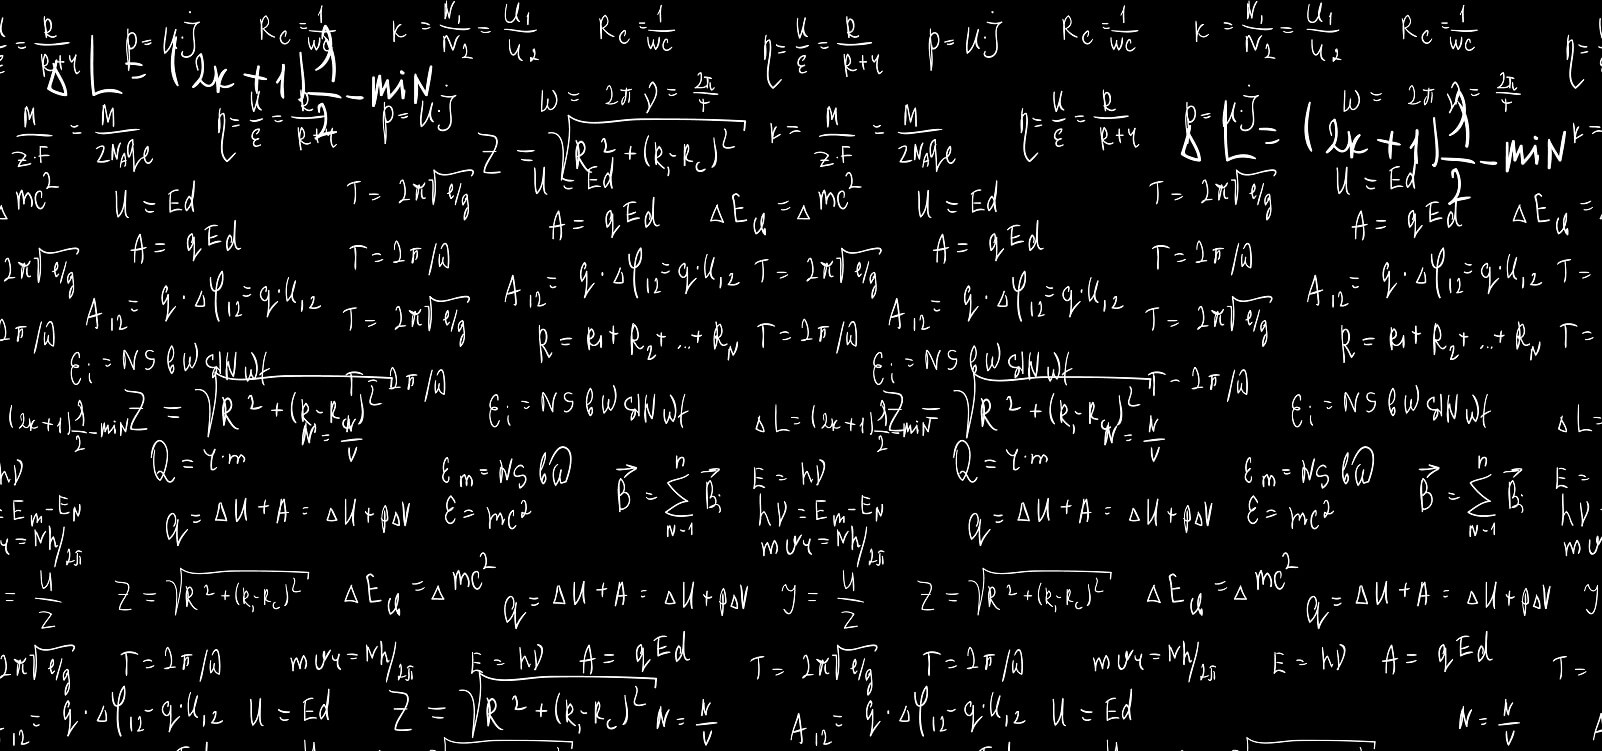 η = U/ε = R/R+r
p = U·j
R_c = 1/wc
K = N₁/N₂ = U₁/U₂
R_c = 1/wc
η = U/ε = R/R+r
p = U·j
R_c = 1/wc
K = N₁/N₂ = U₁/U₂
R_c = 1/wc
Δ L = (2k+1) λ/2 - miN
W = 2π ν = 2π/T
W = 2π ν = 2π/T
M/z·F = M/2N_A qe
η = U/ε = R/R+r
p = U·j
K = M/z·F = M/2N_A qe
η = U/ε = R/R+r
Δ L = (2k+1) λ/2 - miN
Z = √R² + (R_i - R_c)²
Δ mc²
U = Ed
T = 2π√e/g
U = Ed
Δ E_cb = Δ mc²
U = Ed
T = 2π√e/g
U = Ed
A = qEd
A = qEd
A = qEd
A = qEd
Δ E_cb = Δ
2π√e/g
T = 2π/ω
A₁₂ = q·Δφ₁₂ = q·U₁₂
T = 2π√e/g
T = 2π/ω
A₁₂ = q·Δφ₁₂ = q·U₁₂
T =
A₁₂ = q·Δφ₁₂ = q·U₁₂
T = 2π√e/g
A₁₂ = q·Δφ₁₂ = q·U₁₂
T = 2π√e/g
2π/ω
R = R₁ + R₂ + ... + R_N
T = 2π/ω
R = R₁ + R₂ + ... + R_N
T =
ε_i = NSBW SIN Wt
T = 2π/ω
ε_i = NSBW SIN Wt
T = 2π/ω
(2k+1) λ/2 - miN
Z = √R² + (R_i - R_c)²
ε_i = NSBW SIN Wt
Δ L = (2k+1) λ/2 - miN
Z = √R² + (R_i - R_c)²
ε_i = NSBW SIN Wt
Δ L =
N = N/V
N = N/V
hν
Q = r·m
ε_m = NSBω
B = Σ B_i
n
N-1
E = hν
Q = r·m
ε_m = NSBω
B = Σ B_i
n
N-1
E =
= E_m - E_N
q = ΔU + A = ΔU + pΔV
ε = mc²
hν = E_m - E_N
q = ΔU + A = ΔU + pΔV
ε = mc²
hν
= Nh/2π
mvr = Nh/2π
mv
= U/Z
Z = √R² + (R_i - R_c)²
Δ E_cb = Δ mc²
q = ΔU + A = ΔU + pΔV
y = U/Z
Z = √R² + (R_i - R_c)²
Δ E_cb = Δ mc²
q = ΔU + A = ΔU + pΔV
y
2π√e/g
T = 2π/ω
mvr = Nh/2π
E = hν
A = qEd
T = 2π√e/g
T = 2π/ω
mvr = Nh/2π
E = hν
A = qEd
T =
12 = q·Δφ₁₂ - q·U₁₂
U = Ed
Z = √R² + (R_i - R_c)²
N = N/V
A₁₂ = q·Δφ₁₂ - q·U₁₂
U = Ed
N = N/V